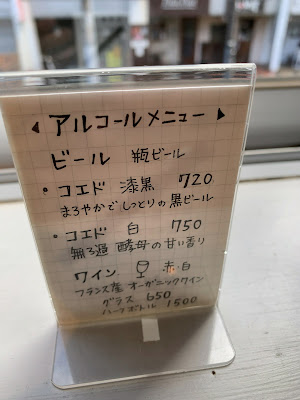 アルコールメニュー
ビール 瓶ビール
・コエド 漆黒 720
まろやかでしっとりの黒ビール
・コエド 白 750
無ろ過 酵母の甘い香り
ワイン 赤・白
フランス産 オーガニックワイン
グラス 650
ハーフボトル 1500